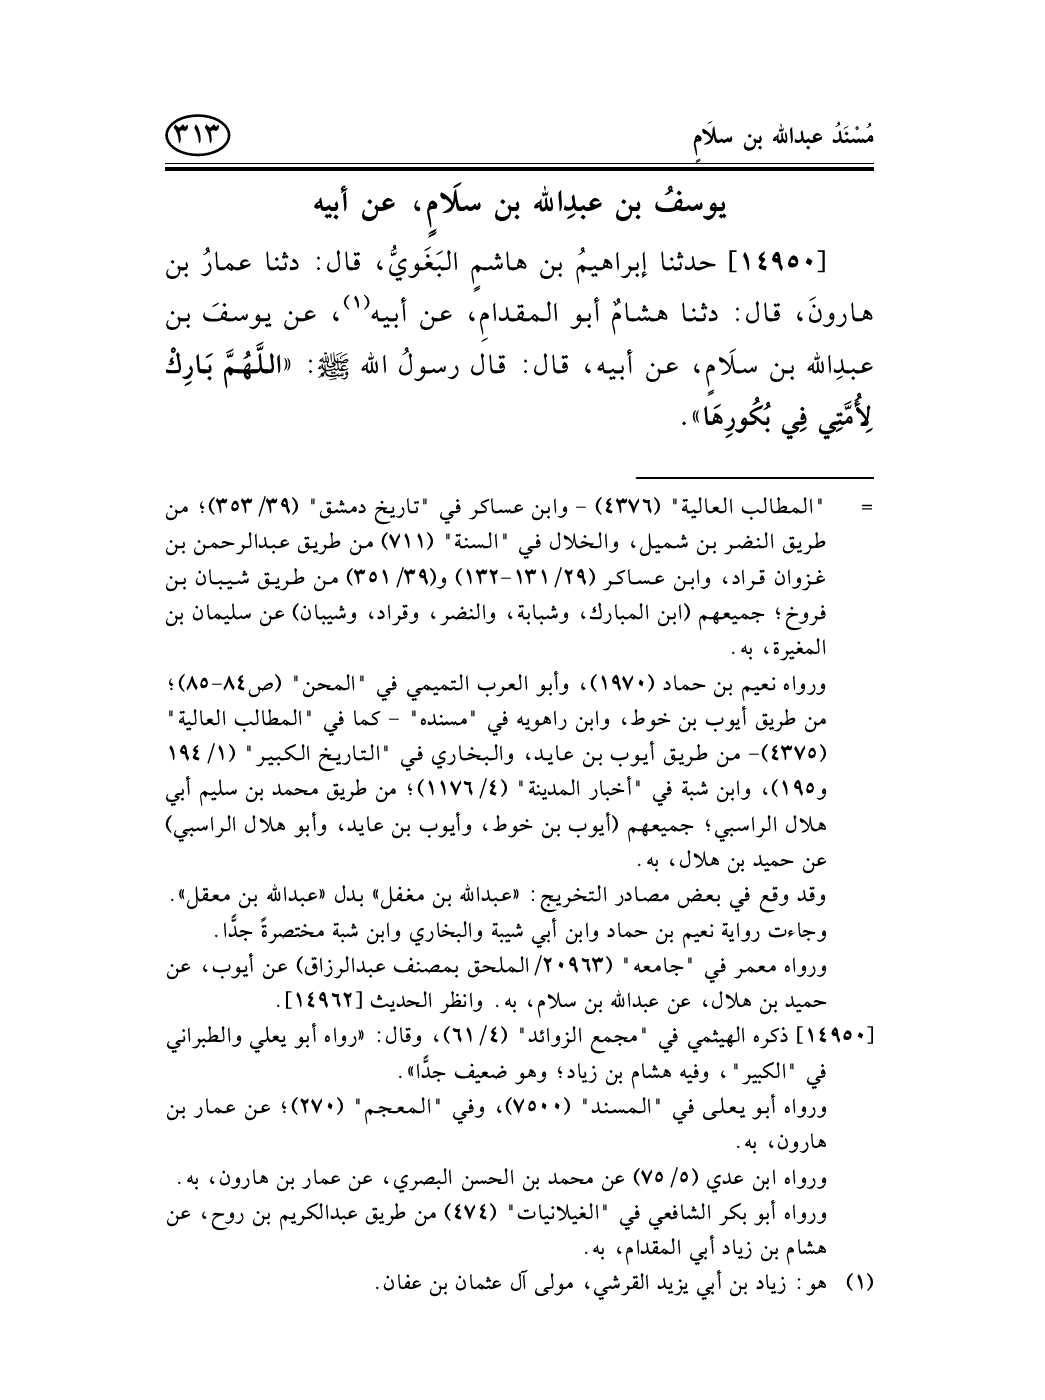 مُسْنَدُ عبدالله بن سلَامٍ
٣١٣
يوسفُ بن عبدِالله بن سلَامٍ، عن أبيه
[١٤٩٥٠] حدثنا إبراهيمُ بن هاشمٍ البَغَويُّ، قال: دثنا عمارُ بن
هارونَ، قال: دثنا هشامٌ أبو المقدامِ، عن أبيه(١)، عن يوسفَ بن
عبدِالله بن سلَامٍ، عن أبيه، قال: قال رسولُ الله ﷺ: «اللَّهُمَّ بَارِكْ
لِأُمَّتِي فِي بُكُورِهَا».
= "المطالب العالية" (٤٣٧٦) - وابن عساكر في "تاريخ دمشق" (٣٩/ ٣٥٣)؛ من
طريق النضر بن شميل، والخلال في "السنة" (٧١١) من طريق عبدالرحمن بن
غزوان قراد، وابن عساكر (٢٩/ ١٣١-١٣٢) و(٣٩/ ٣٥١) من طريق شيبان بن
فروخ؛ جميعهم (ابن المبارك، وشبابة، والنضر، وقراد، وشيبان) عن سليمان بن
المغيرة، به.
ورواه نعيم بن حماد (١٩٧٠)، وأبو العرب التميمي في "المحن" (ص٨٤-٨٥)؛
من طريق أيوب بن خوط، وابن راهويه في "مسنده" - كما في "المطالب العالية"
(٤٣٧٥)- من طريق أيوب بن عايد، والبخاري في "التاريخ الكبير" (١/ ١٩٤
و١٩٥)، وابن شبة في "أخبار المدينة" (٤/ ١١٧٦)؛ من طريق محمد بن سليم أبي
هلال الراسبي؛ جميعهم (أيوب بن خوط، وأيوب بن عايد، وأبو هلال الراسبي)
عن حميد بن هلال، به.
وقد وقع في بعض مصادر التخريج: «عبدالله بن مغفل» بدل «عبدالله بن معقل».
وجاءت رواية نعيم بن حماد وابن أبي شيبة والبخاري وابن شبة مختصرةً جدًّا.
ورواه معمر في "جامعه" (٢٠٩٦٣/ الملحق بمصنف عبدالرزاق) عن أيوب، عن
حميد بن هلال، عن عبدالله بن سلام، به. وانظر الحديث [١٤٩٦٢].
[١٤٩٥٠] ذكره الهيثمي في "مجمع الزوائد" (٤/ ٦١)، وقال: «رواه أبو يعلي والطبراني
في "الكبير"، وفيه هشام بن زياد؛ وهو ضعيف جدًّا».
ورواه أبو يعلى في "المسند" (٧٥٠٠)، وفي "المعجم" (٢٧٠)؛ عن عمار بن
هارون، به.
ورواه ابن عدي (٥/ ٧٥) عن محمد بن الحسن البصري، عن عمار بن هارون، به.
ورواه أبو بكر الشافعي في "الغيلانيات" (٤٧٤) من طريق عبدالكريم بن روح، عن
هشام بن زياد أبي المقدام، به.
(١) هو: زياد بن أبي يزيد القرشي، مولى آل عثمان بن عفان.